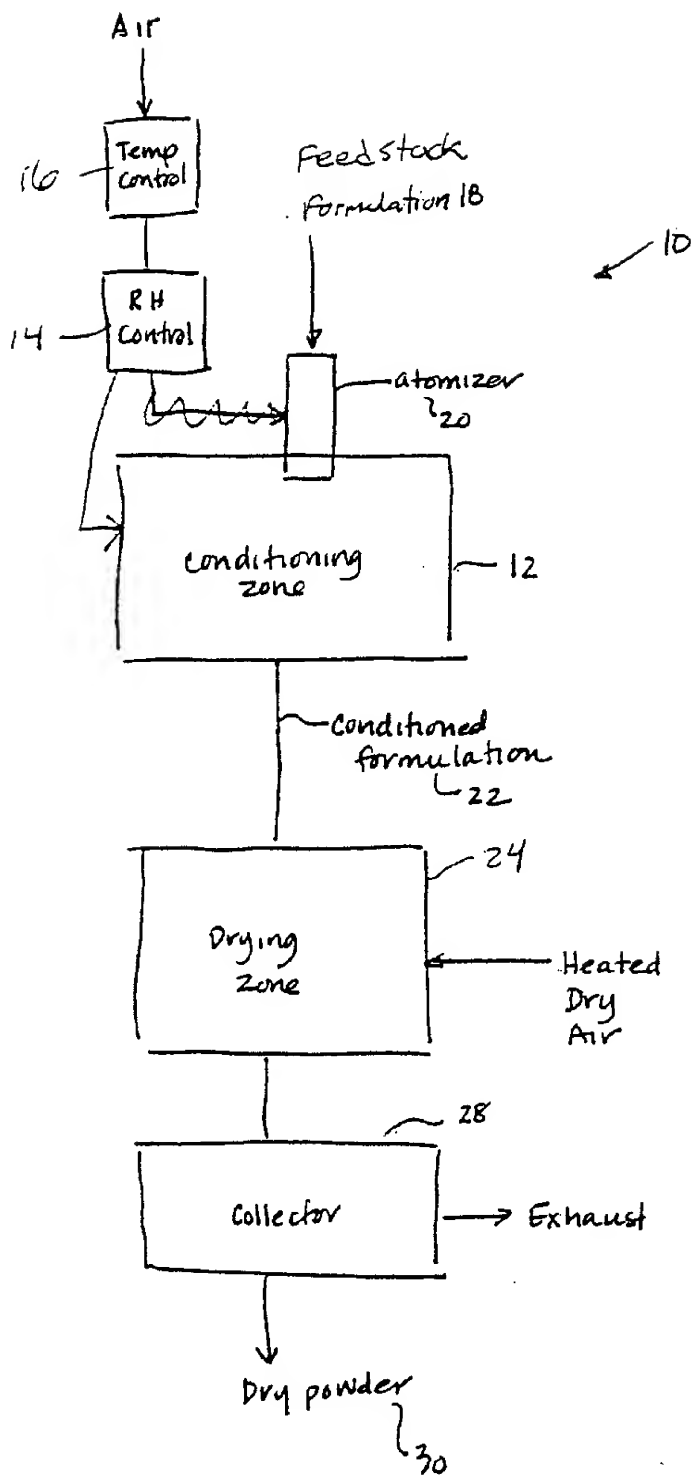 Air
Temp
Control
16
Feedstock
Formulation 18
10
RH
Control
14
atomizer
20
Conditioning
zone
12
Conditioned
formulation
22
24
Drying
zone
Heated
Dry
Air
28
Collector
Exhaust
Dry powder
30